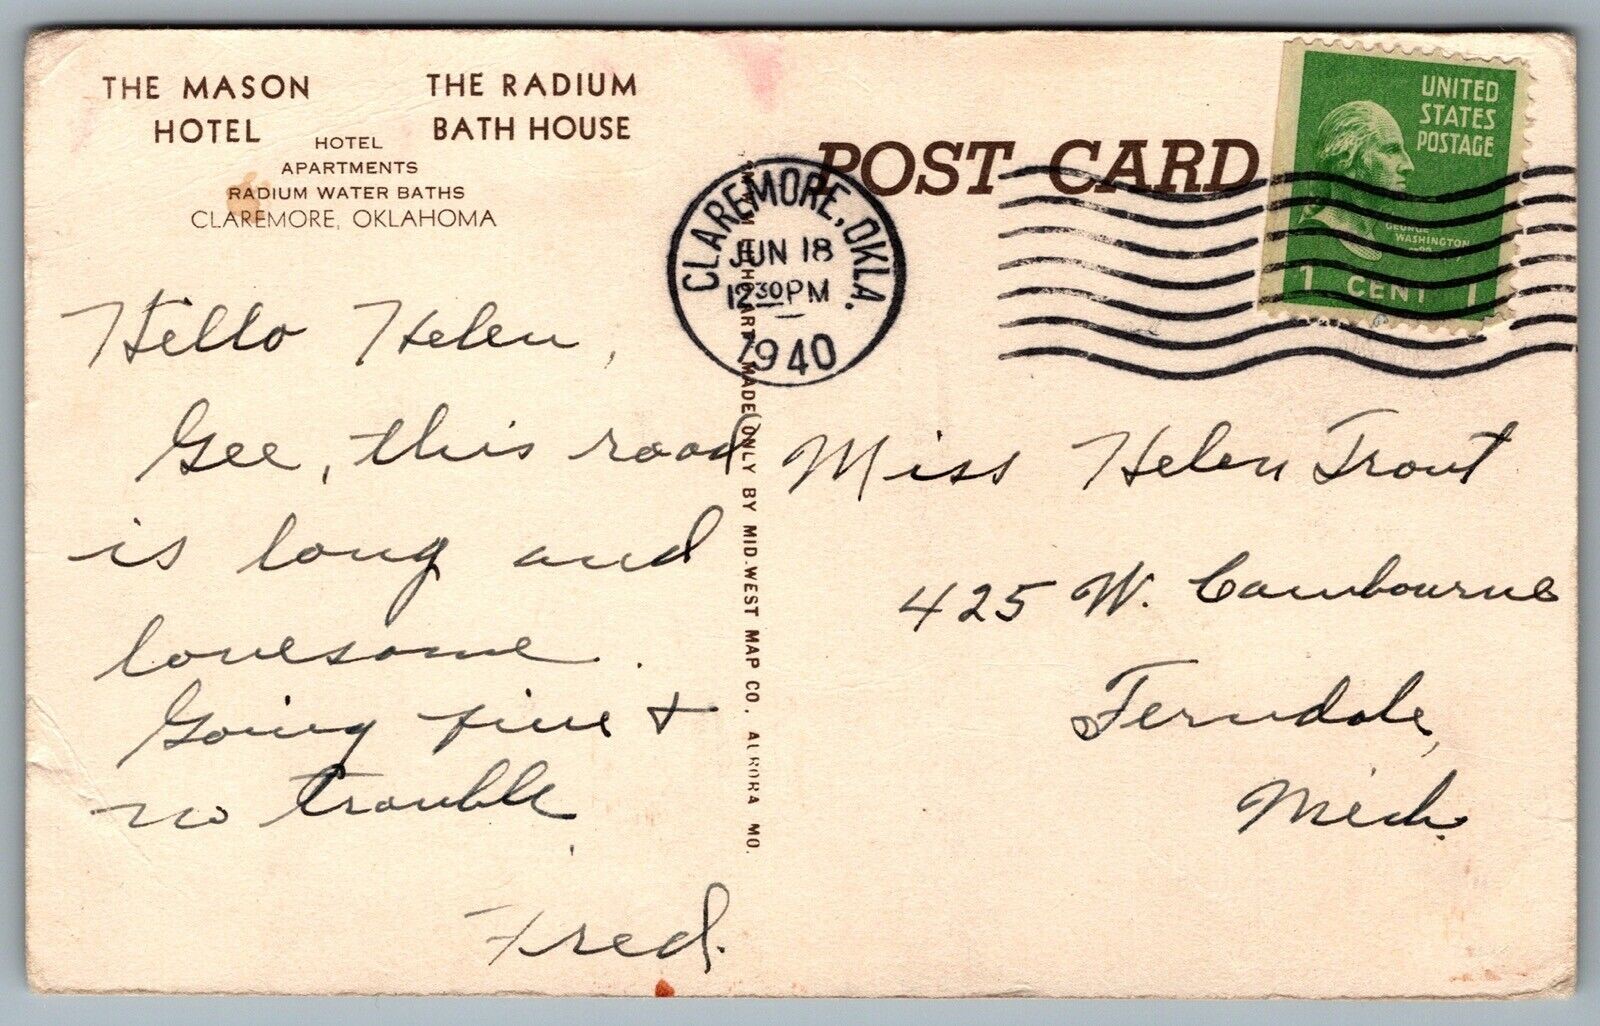 THE MASON HOTEL
THE RADIUM BATH HOUSE
HOTEL
APARTMENTS
RADIUM WATER BATHS
CLAREMORE, OKLAHOMA
POST CARD
CLAREMORE, OKLA.
JUN 18
12 30 PM
1940
UNITED
STATES
POSTAGE
GEORGE
WASHINGTON
1 CENT 1
Hello Helen,
Gee, this road
is long and
lonesome.
Going fine +
no trouble
Fred.
MADE ONLY BY MID-WEST MAP CO., AURORA MO.
Miss Helen Trout
425 W. Cambourne
Ferndale,
Mich.